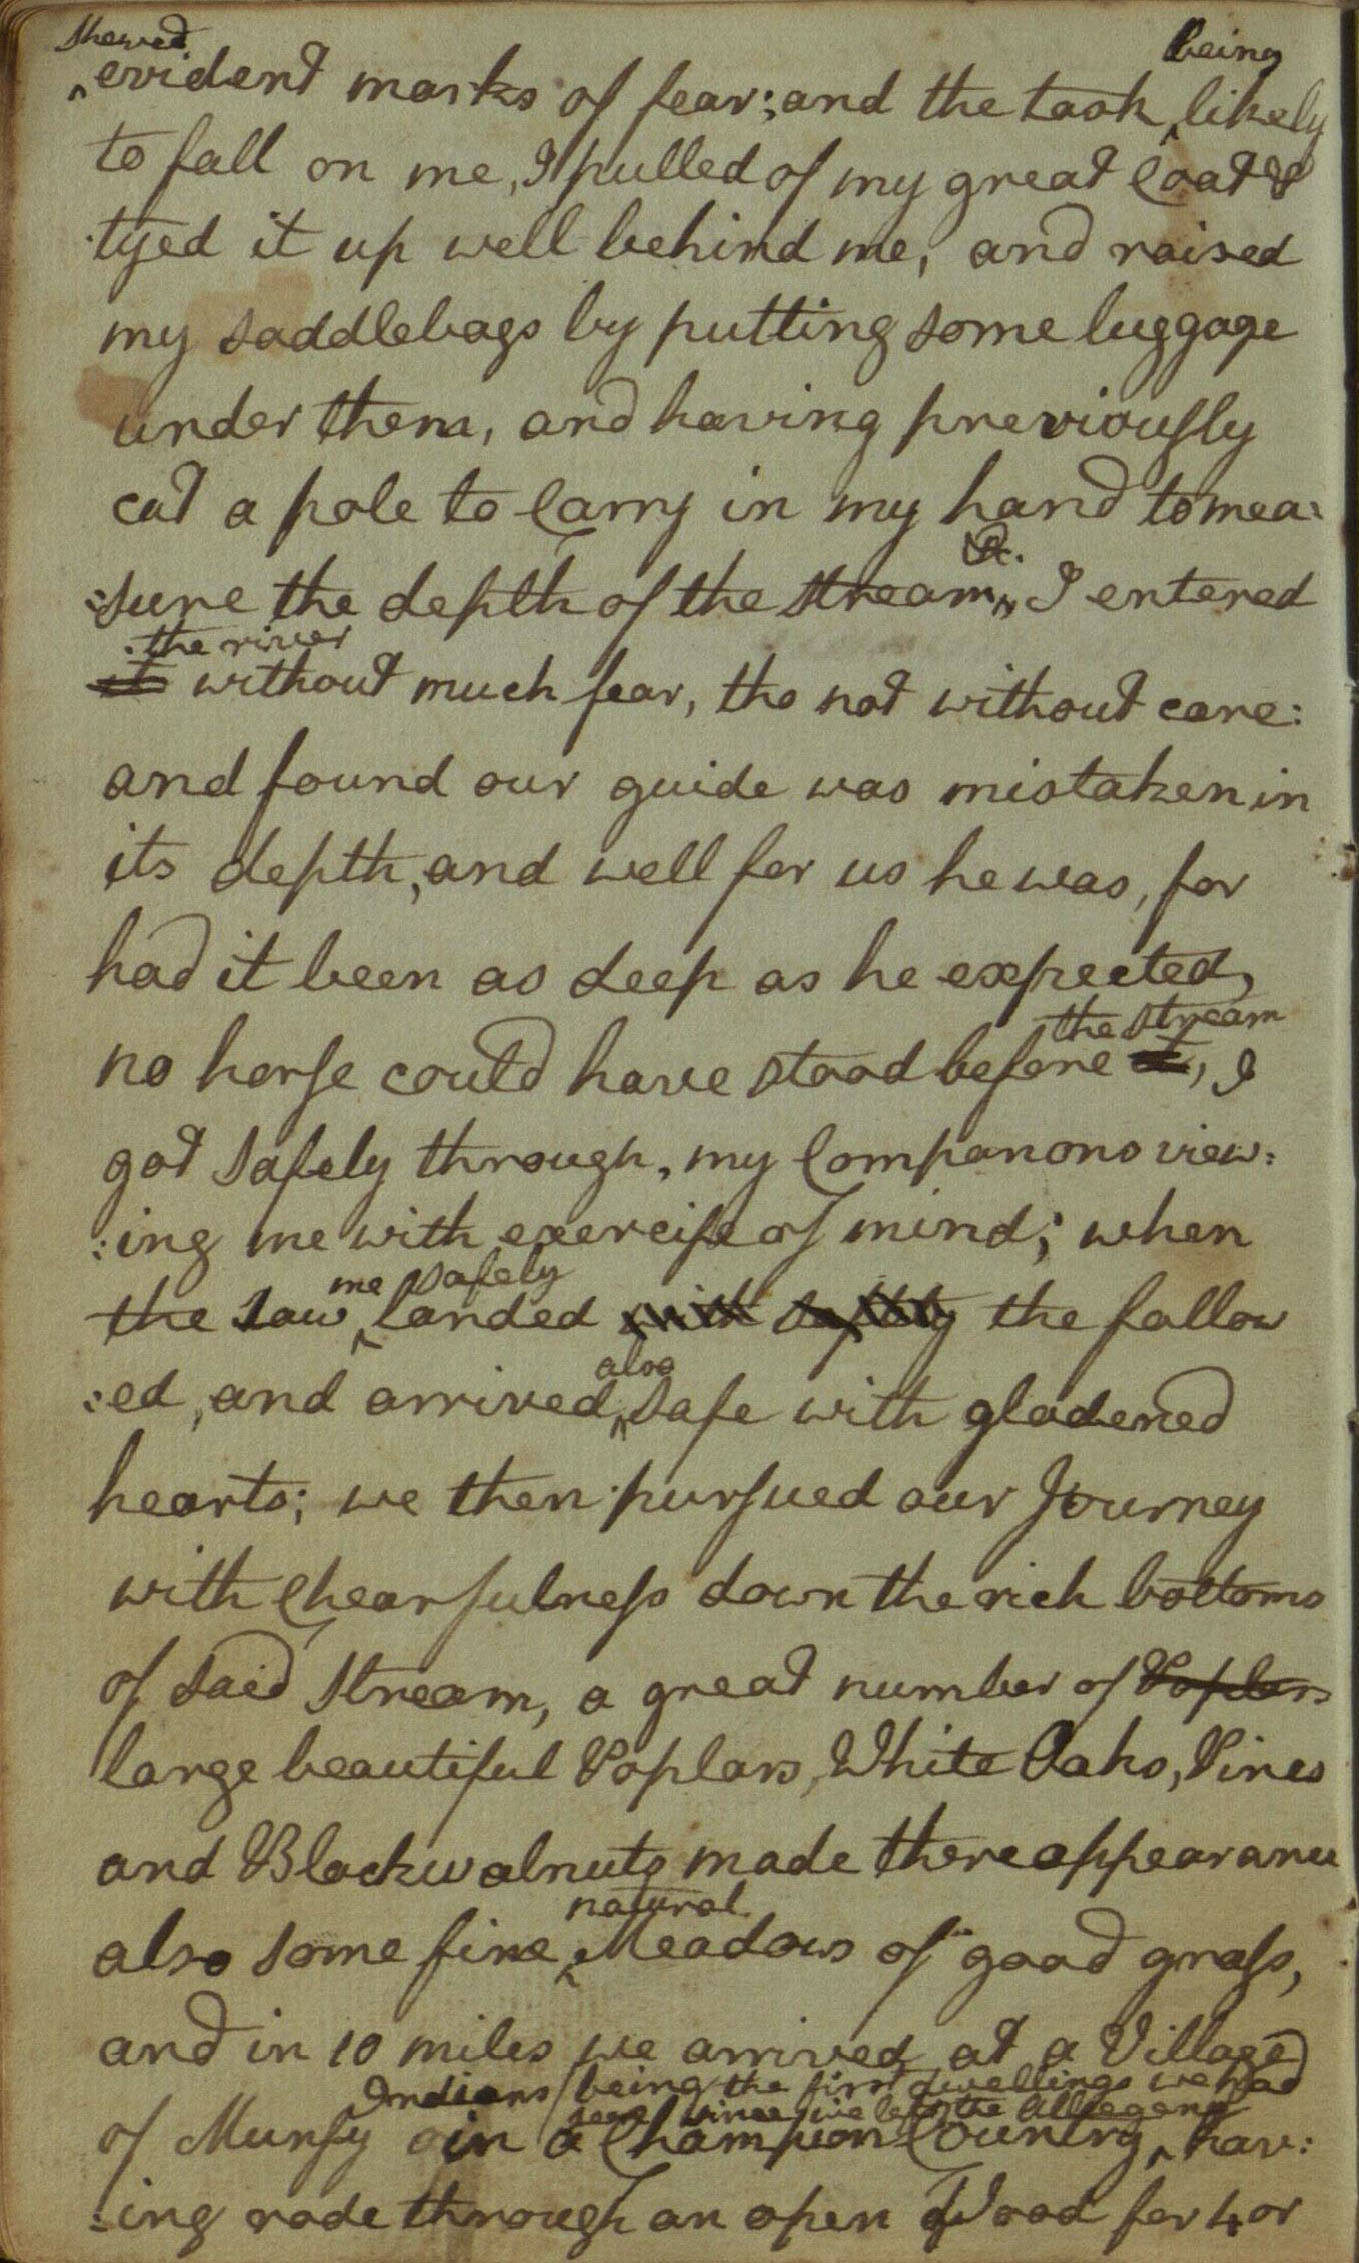 shewed being
^evident marks of fear; and the task ^ likely
to fall on me, I pulled of my great Coat &
tyed it up well behind me, and raised
my saddlebags by putting some luggage
under them, and having previously
cut a pole to Carry in my hand to mea:
&c.
:sure the depth of the stream, I entered
the river
it without much fear, tho not without care:
and found our guide was mistaken in
its depth, and well for us he was, for
had it been as deep as he expected,
the stream
no horse could have stood before it, I
got safely through, my Companons view:
:ing me with exercise of mind; when
me safely
the saw ^ landed with safety the follow
also
:ed, and arrived ^ safe with gladened
hearts; we then pursued our Journey
with Chearfulness down the rich bottoms
of said Stream, a great number of Poplars
large beautiful Poplars, White Oaks, Pines
and Blackwalnuts made there appearance
natural
also some fine ^ Meadows of good grass,
and in 10 miles we arrived at a Village
Indians being the first dwellings we had
seen since we left the Allegeny
of Munsy in a Champion Country, ^ hav:
:ing rode through an open Wood for 4 or